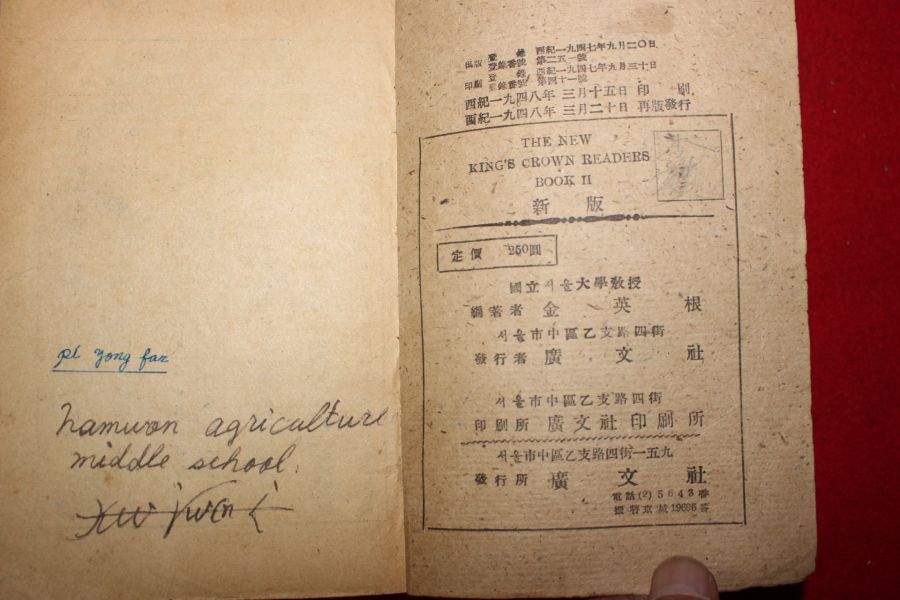 pi yong fan
namwon agriculture
middle school.
出版 登錄 西紀一九四七年九月二〇日
登錄番號 第二五一號
印刷 登錄 西紀一九四七年九月三十日
登錄番號 第四十一號
西紀一九四八年 三月十五日 印刷
西紀一九四八年 三月二十日 再版發行
THE NEW
KING'S CROWN READERS
BOOK II
新版
定價 250圓
國立서울大學敎授
編著者 金英根
서울市中區乙支路四街
發行者 廣文社
서울市中區乙支路四街
印刷所 廣文社印刷所
서울市中區乙支路四街一五九
發行所 廣文社
電話(2)5643番
振替京城19696番